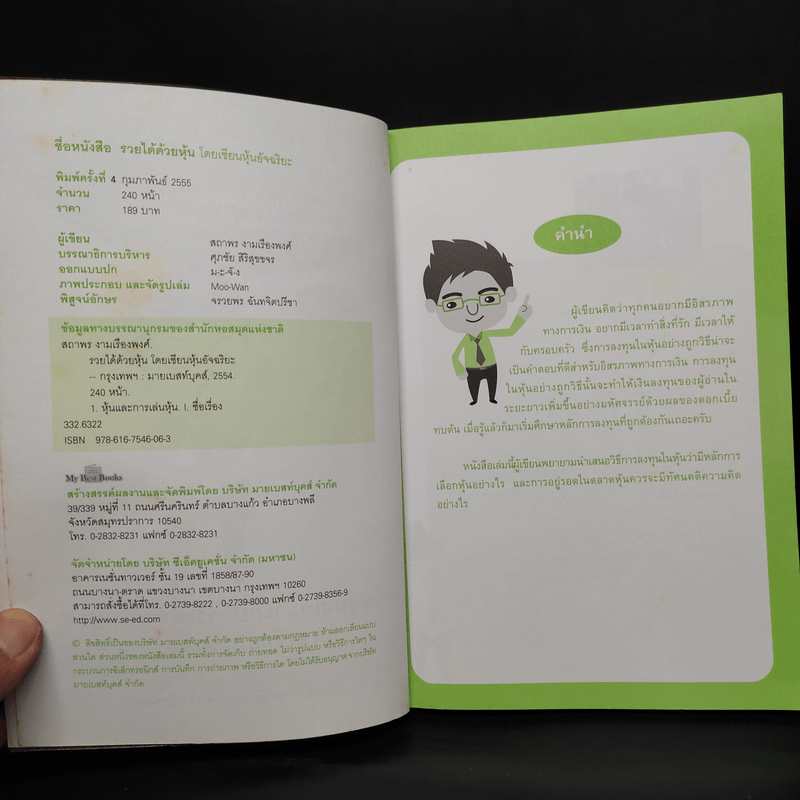 ชื่อหนังสือ รวยได้ด้วยหุ้น โดยเซียนหุ้นอัจฉริยะ
พิมพ์ครั้งที่ 4 กุมภาพันธ์ 2555
จำนวน 240 หน้า
ราคา 189 บาท
ผู้เขียน สถาพร งามเรืองพงศ์
บรรณาธิการบริหาร ศุภชัย สิริสุขขจร
ออกแบบปก ม-ะ-จ๊-ง
ภาพประกอบ และจัดรูปเล่ม Moo-Wan
พิสูจน์อักษร จรวยพร ฉันทจิตปรีชา
ข้อมูลทางบรรณานุกรมของสำนักหอสมุดแห่งชาติ
สถาพร งามเรืองพงศ์.
รวยได้ด้วยหุ้น โดยเซียนหุ้นอัจฉริยะ
-- กรุงเทพฯ : มายเบสท์บุคส์, 2554.
240 หน้า.
1. หุ้นและการเล่นหุ้น. I. ชื่อเรื่อง
332.6322
ISBN 978-616-7546-06-3
My Best Books
สร้างสรรค์ผลงานและจัดพิมพ์โดย บริษัท มายเบสท์บุคส์ จำกัด
39/339 หมู่ที่ 11 ถนนศรีนครินทร์ ตำบลบางแก้ว อำเภอบางพลี
จังหวัดสมุทรปราการ 10540
โทร. 0-2832-8231 แฟกซ์ 0-2832-8231
จัดจำหน่ายโดย บริษัท ซีเอ็ดยูเคชั่น จำกัด (มหาชน)
อาคารเนชั่นทาวเวอร์ ชั้น 19 เลขที่ 1858/87-90
ถนนบางนา-ตราด แขวงบางนา เขตบางนา กรุงเทพฯ 10260
สามารถสั่งซื้อได้ที่โทร. 0-2739-8222 , 0-2739-8000 แฟกซ์ 0-2739-8356-9
http://www.se-ed.com
© ลิขสิทธิ์เป็นของบริษัท มายเบสท์บุคส์ จำกัด อย่างถูกต้องตามกฎหมาย ห้ามลอกเลียนแบบ
ส่วนใด ส่วนหนึ่งของหนังสือเล่มนี้ รวมทั้งการจัดเก็บ ถ่ายทอด ไม่ว่ารูปแบบ หรือวิธีการใดๆ ใน
กระบวนการอิเล็กทรอนิกส์ การบันทึก การถ่ายภาพ หรือวิธีการใด โดยไม่ได้รับอนุญาตจากบริษัท
มายเบสท์บุคส์ จำกัด
คำนำ
ผู้เขียนคิดว่าทุกคนอยากมีอิสรภาพ
ทางการเงิน อยากมีเวลาทำสิ่งที่รัก มีเวลาให้
กับครอบครัว ซึ่งการลงทุนในหุ้นอย่างถูกวิธีน่าจะ
เป็นคำตอบที่ดีสำหรับอิสรภาพทางการเงิน การลงทุน
ในหุ้นอย่างถูกวิธีนั้นจะทำให้เงินลงทุนของผู้อ่านใน
ระยะยาวเพิ่มขึ้นอย่างมหัศจรรย์ด้วยผลของดอกเบี้ย
ทบต้น เมื่อรู้แล้วก็มาเริ่มศึกษาหลักการลงทุนที่ถูกต้องกันเถอะครับ
หนังสือเล่มนี้ผู้เขียนพยายามนำเสนอวิธีการลงทุนในหุ้นว่ามีหลักการ
เลือกหุ้นอย่างไร และการอยู่รอดในตลาดหุ้นควรจะมีทัศนคติความคิด
อย่างไร